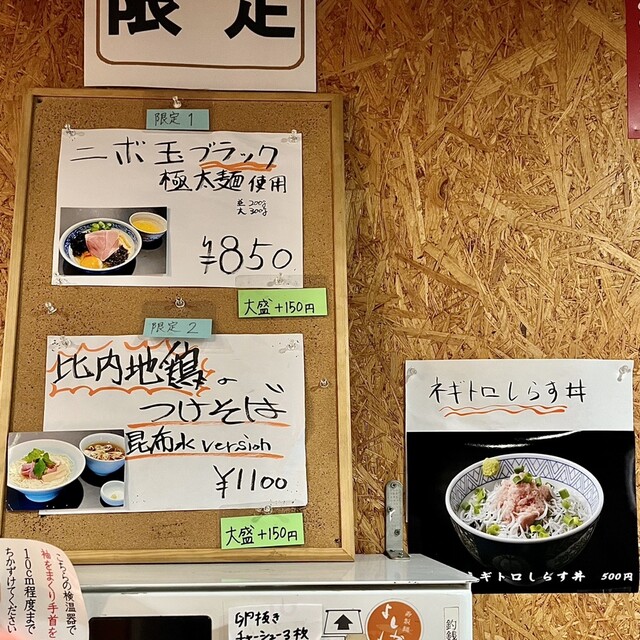 限定
限定1
ニボ玉ブラック
極太麺使用
並200g
大300g
¥850
大盛+150円
限定2
比内地鶏の
つけそば
昆布水version
¥1100
大盛+150円
ネギトロしらす丼
ネギトロしらす丼 500円
こちらの検温器で
袖をまくり手首を
10cm程度まで
ちかずけてください
チャーシュー3枚
釣銭